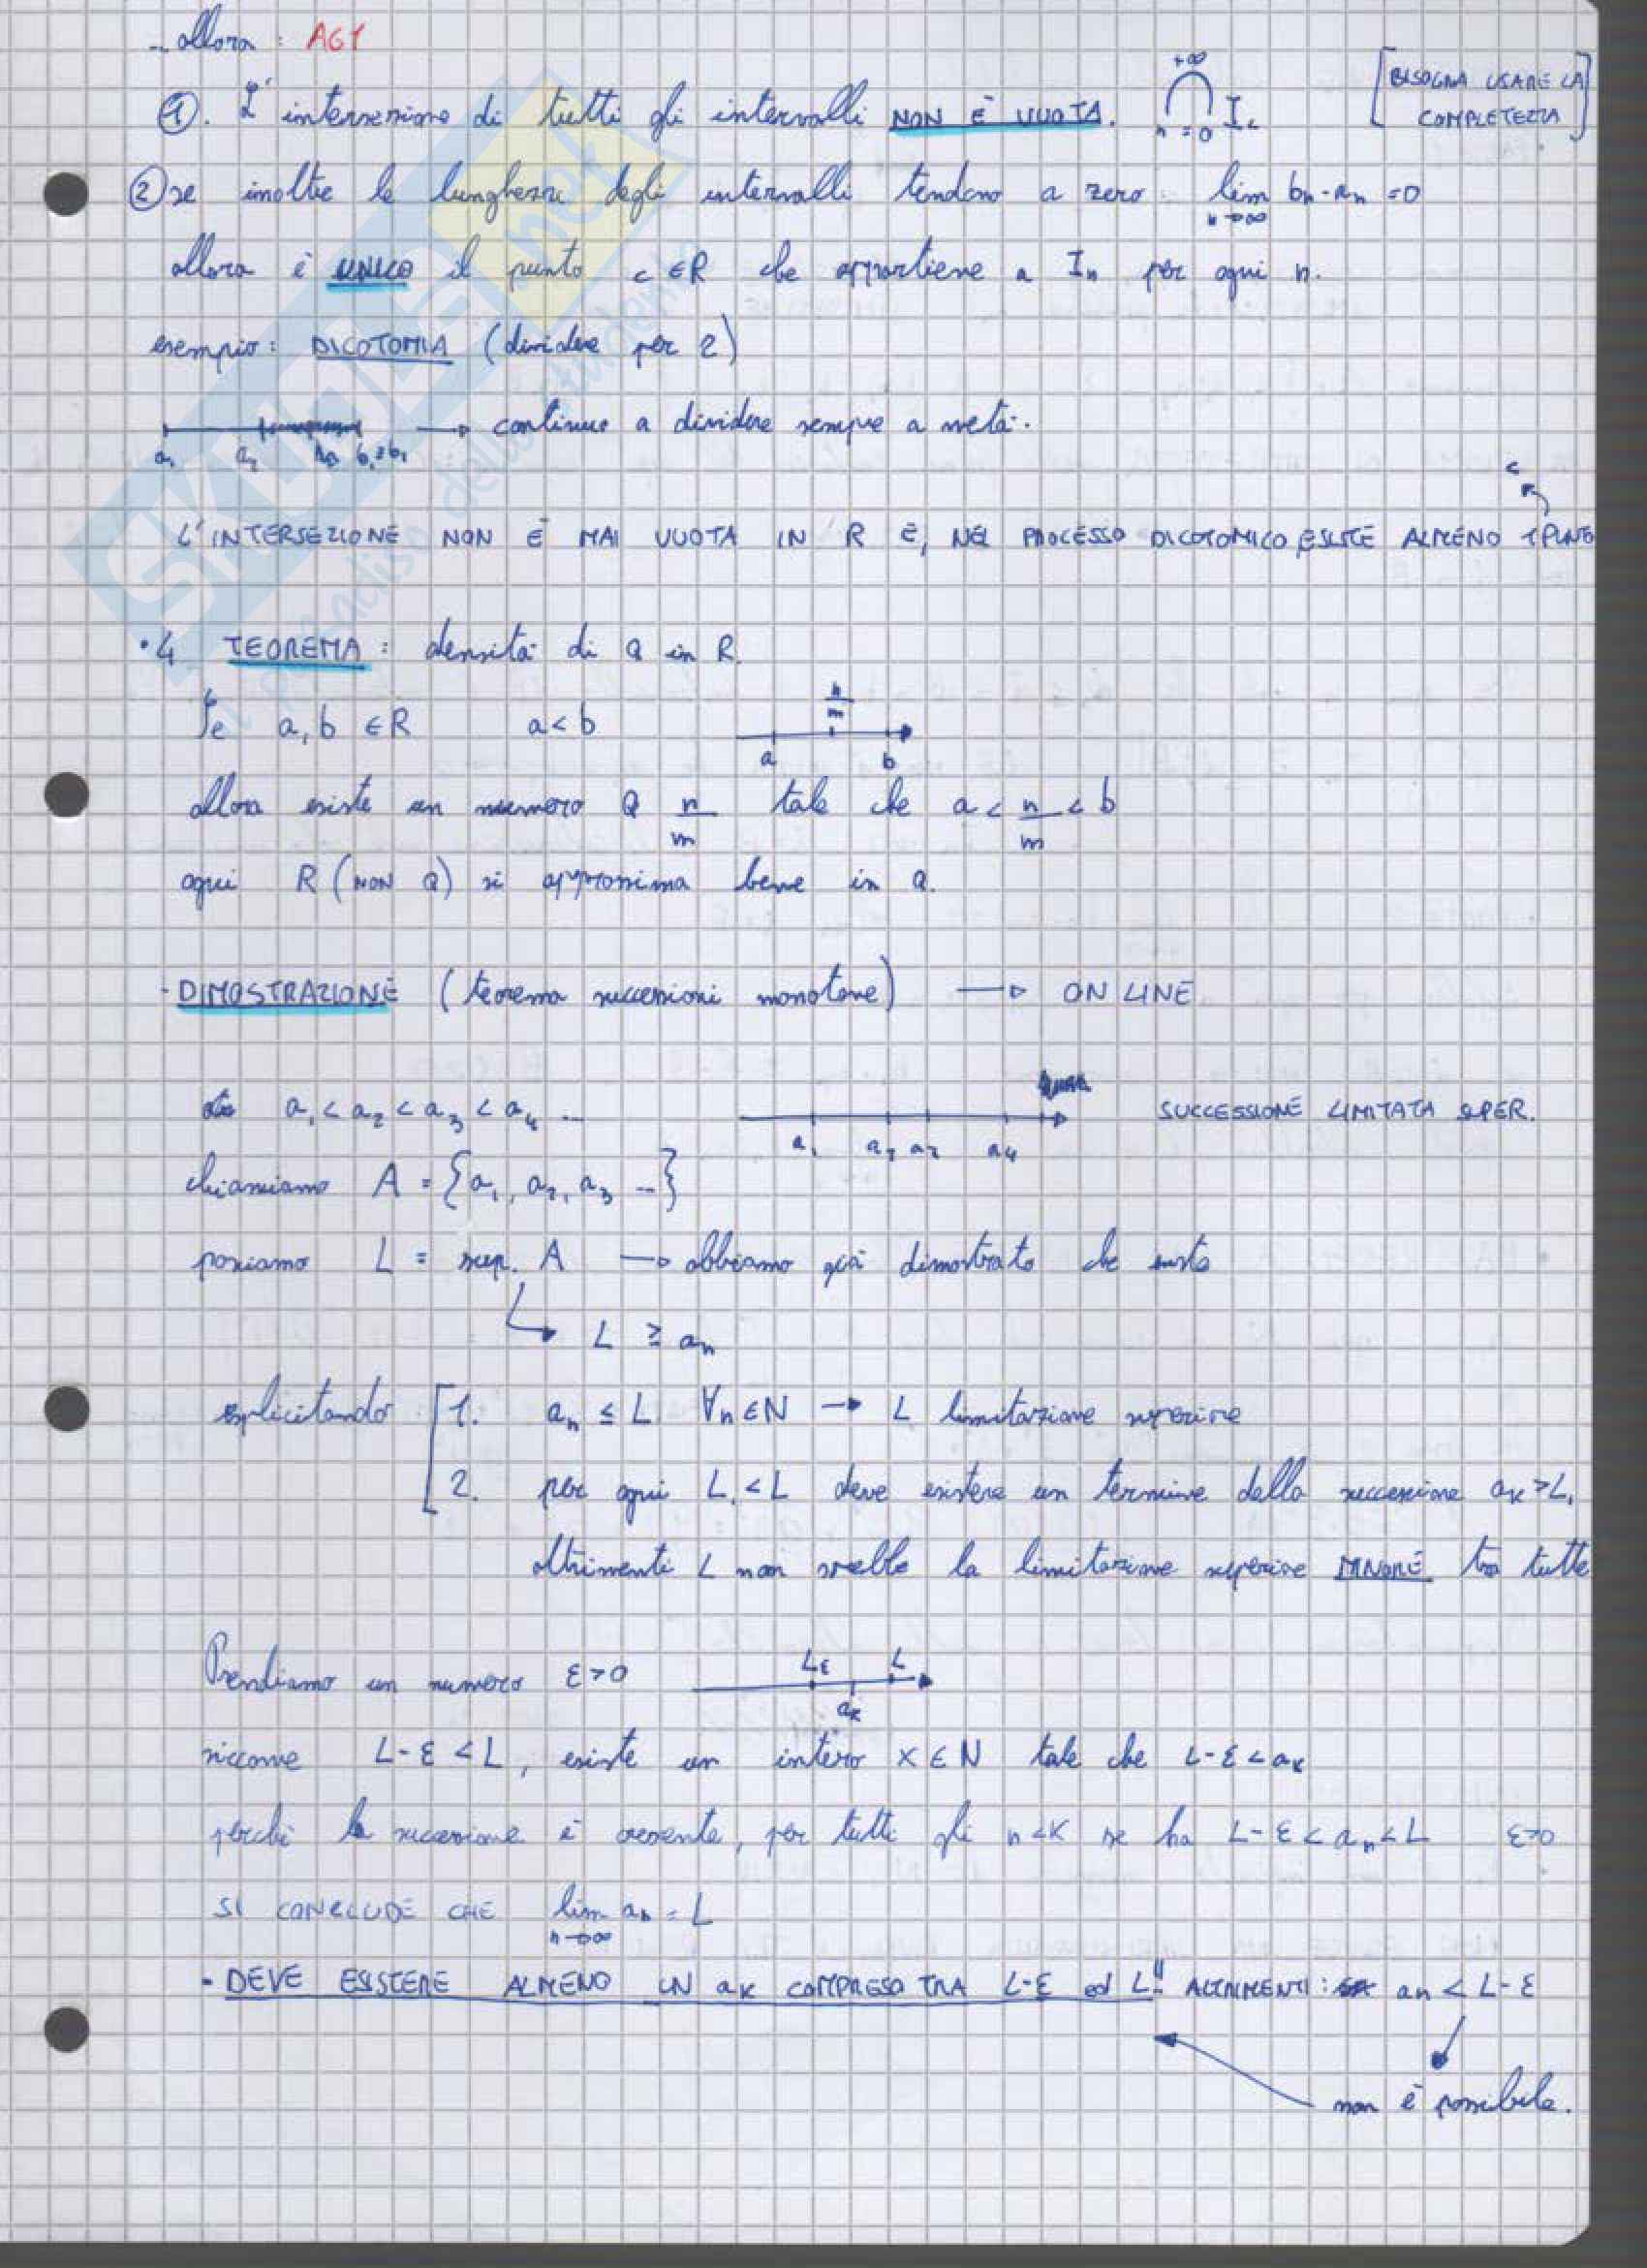 ... allora : AG1
① . L'intersezione di tutti gli intervalli NON È VUOTA. +∞ ∩ n=0 I [BISOGNA USARE LA COMPLETEZZA]
② se inoltre le lunghezze degli intervalli tendono a zero : lim n→∞ bn - an = 0
allora è UNICO il punto c ∈ R che appartiene a In per ogni n.
esempio : DICOTOMIA (dividere per 2)
→ continuo a dividere sempre a metà.
a1 a2 b2=b1
c
L'INTERSEZIONE NON È MAI VUOTA IN R E, NEL PROCESSO DICOTOMICO ESISTE ALMENO 1 PUNTO
• 4 TEOREMA : densità di Q in R.
Se a, b ∈ R a < b
n/m
a b
allora esiste un numero Q n/m tale che a < n/m < b
ogni R (NON Q) si approssima bene in Q.
- DIMOSTRAZIONE (teorema successioni monotone) → ON LINE
a1 < a2 < a3 < a4 ... SUCCESSIONE LIMITATA SUPER.
a1 a2 a3 a4
chiamiamo A = {a1, a2, a3 ...}
poniamo L = sup. A → abbiamo già dimostrato che esiste
L ≥ an
esplicitando [1. an ≤ L ∀n ∈ N → L limitazione superiore
2. per ogni L1 < L deve esistere un termine della successione aK > L1
altrimenti L non sarebbe la limitazione superiore MINORE tra tutte
Prendiamo un numero ε > 0 Lε L
aK
siccome L - ε < L , esiste un intero K ∈ N tale che L - ε < aK
perchè la successione è crescente, per tutti gli n < K se ha L - ε < an < L ε > 0
SI CONCLUDE CHE lim n→∞ an = L
- DEVE ESISTERE ALMENO UN aK COMPRESO TRA L-ε ed L!! ALTRIMENTI : an < L - ε
non è possibile.